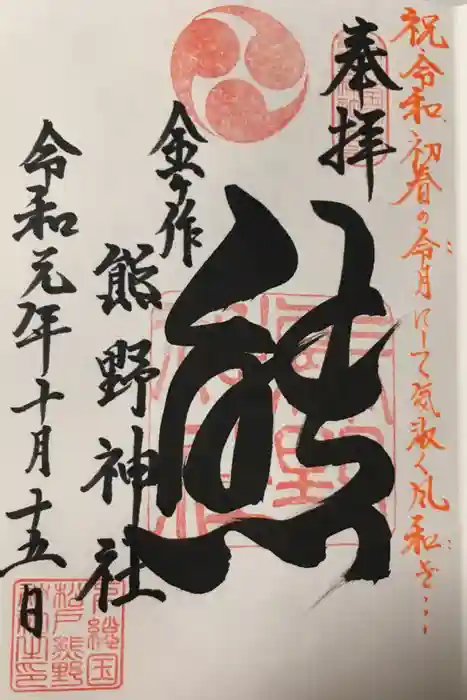 祝 令和 初春の令月にして気淑く風和ぎ…
奉拝
熊
金ヶ作
熊野神社
令和元年十月十五日
下総国
松戸熊野